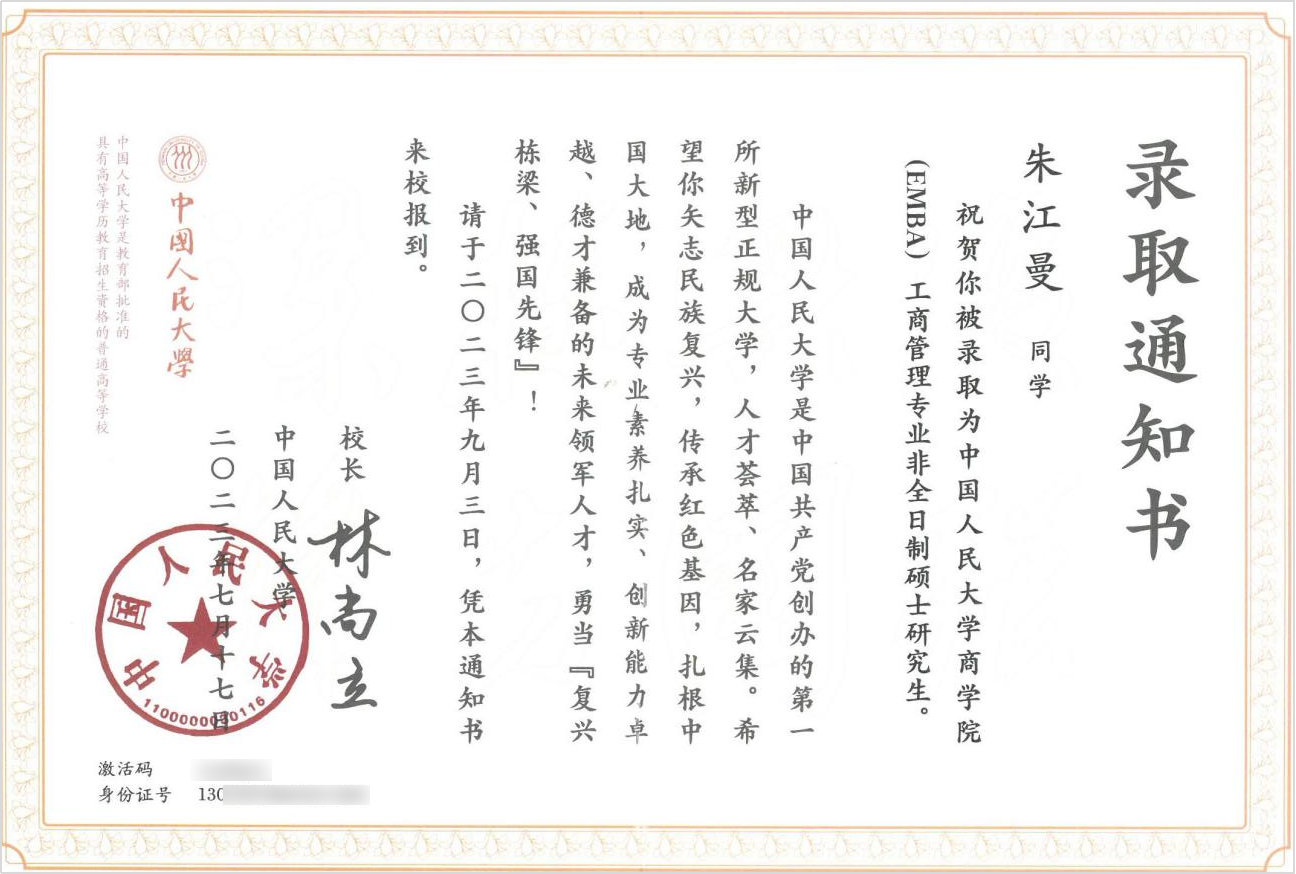 录取通知书
朱江曼 同学
祝贺你被录取为中国人民大学商学院
(EMBA)工商管理专业非全日制硕士研究生。
中国人民大学是中国共产党创办的第一
所新型正规大学，人才荟萃、名家云集。希
望你矢志民族复兴，传承红色基因，扎根中
国大地，成为专业素养扎实、创新能力卓
越、德才兼备的未来领军人才，勇当『复兴
栋梁、强国先锋』！
请于二〇二三年九月三日，凭本通知书
来校报到。
校长 林尚立
中国人民大学
二〇二三年七月十七日
中國人民大學
中国人民大学是教育部批准的
具有高等学历教育招生资格的普通高等学校
中国人民大学
激活码
身份证号 130